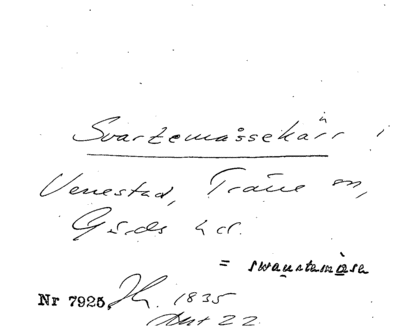 Svartemåssekärr i
Venestad, Träne sn,
Gärds hd.
= swaṇtamåsa
Nr 7925 1835
Akt 22